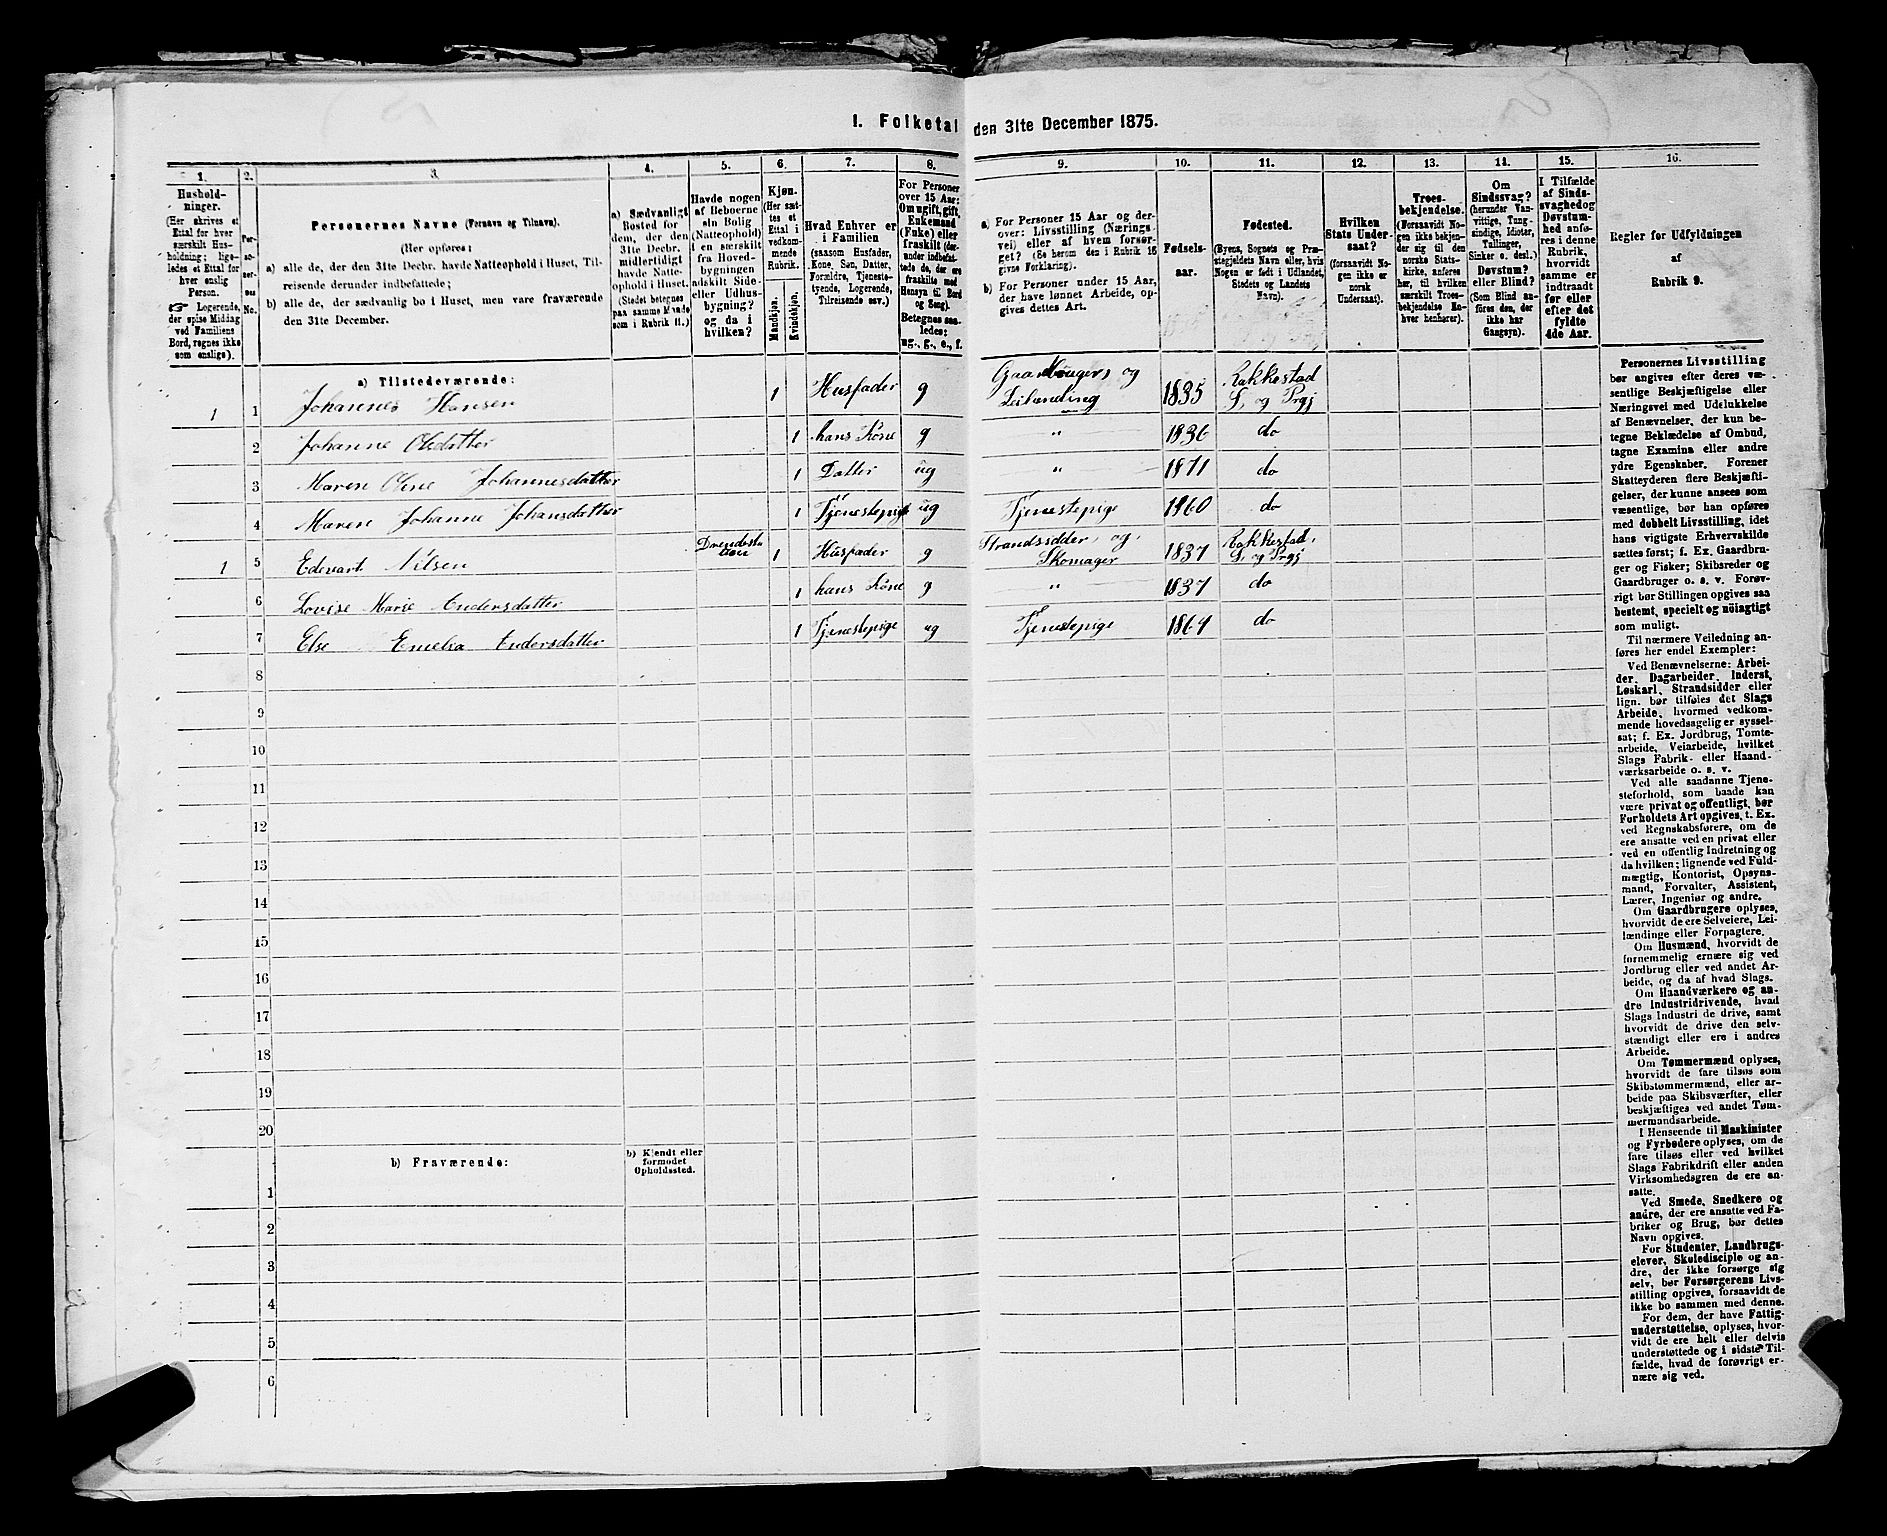 1. Folketal den 31te December 1875.
1.
Hushold-
ninger.
(Her skrives et
Ettal for hver
særskilt Hus-
holdning; lige-
ledes et Ettal for
hver enslig
Person.
Logerende,
der spise Middag
ved Familiens
Bord, regnes ikke
som enslige).
2.
No.
3.
Personernes Navne (Fornavn og Tilnavn).
(Her opføres:
a) alle de, der den 31te Decbr. havde Natteophold i Huset, Til-
reisende derunder indbefattede;
b) alle de, der sædvanlig bo i Huset, men vare fraværende
den 31te December.
4.
a) Sædvanligt
Bosted for
dem, der den
31te Decbr.
midlertidigt
havde Natte-
ophold i Huset.
(Stedet betegnes
paa samme Maade
som i Rubrik 11.)
5.
Havde nogen
af Beboerne
sin Bolig
(Natteophold)
i en særskilt
fra Hoved-
bygningen
adskilt Side-
eller Udhus-
bygning?
og da i
hvilken?
6.
Kjøn.
(Her sæt-
tes et
Ettal i
vedkom-
mende
Rubrik.
Mandkjøn.
Kvindekjøn.
7.
Hvad Enhver er
i Familien
(saasom Husfader,
Kone, Søn, Datter,
Forældre, Tjeneste-
tyende, Logerende,
Tilreisende osv.)
8.
For Personer
over 15 Aar:
Om ugift, gift,
Enkemand
(Enke) eller
fraskilt (der-
under indbefat-
tede de, der ere
fraskilte med
Hensyn til Bord
og Seng).
Betegnes saa-
ledes:
ug., g., e., f.
9.
a) For Personer 15 Aar og der-
over: Livsstilling (Nærings-
vei) eller af hvem forsør-
get? (Se herom den i Rubrik 16
givne Forklaring).
b) For Personer under 15 Aar,
der have lønnet Arbeide, op-
gives dettes Art.
10.
Fødsels-
aar.
11.
Fødested.
(Byens, Sognets og Præ-
stegjeldets Navn eller, hvis
Nogen er født i Udlandet,
Stedets og Landets
Navn).
12.
Hvilken
Stats Under-
saat?
(forsaavidt No-
gen ikke er
norsk
Undersaat).
13.
Troes-
bekjendelse.
(Forsaavidt No-
gen ikke bekjen-
der sig til den
norske Stats-
kirke, anføres
her, til hvilken
særskilt Troes-
bekjendelse En-
hver henhører).
14.
Om
Sindssvag?
(herunder Van-
vittige, Tung-
sindige, Idioter,
Tullinger,
Sinker o. desl.).
Døvstum?
eller Blind?
(Som Blind an-
føres den, der
ikke har
Gangsyn).
15.
I Tilfælde
af Sinds-
svaghed og
Døvstum-
hed anfø-
res i denne
Rubrik,
hvorvidt
samme er
indtraadt
før eller
efter det
fyldte
4de Aar.
16.
Regler for Udfyldningen
af
Rubrik 9.
a) Tilstedeværende:
1 1 Johannes Hansen 1 Husfader g Gaardbruger og Leilænding 1835 Rakkestad S. og Prgj
2 Johanne Olsdatter 1 hans Kone g " 1836 do
3 Maren Oline Johannesdatter 1 Datter ug " 1871 do
4 Maren Johanne Johansdatter 1 Tjenestepige ug Tjenestepige 1860 do
1 5 Edevart Nilsen 1 Husfader g Strandsidder og Skomager 1837 Rakkestad S. og Prgj
6 Lovise Marie Andersdatter 1 hans Kone g " 1837 do
7 Else Emelia Andersdatter 1 Tjenestepige ug Tjenestepige 1864 do
8
9
10
11
12
13
14
15
16
17
18
19
20
b) Fraværende:
b) Kjendt eller
formodet
Opholdssted.
1
2
3
4
5
6
Personernes Livsstilling
bør angives efter deres væ-
sentlige Beskjæftigelse eller
Næringsvei med Udelukkelse
af Benævnelser, der kun be-
tegne Beklædelse af Ombud,
tagne Examina eller andre
ydre Egenskaber. Forener
Skatteyderen flere Beskjæfti-
gelser, der kunne ansees som
væsentlige, bør han opføres
med dobbelt Livsstilling, idet
hans vigtigste Erhvervskilde
sættes først; f. Ex. Gaardbru-
ger og Fisker; Skibsreder og
Gaardbruger o. s. v. Forøv-
rigt bør Stillingen opgives saa
bestemt, specielt og nöiagtigt
som muligt.
Til nærmere Veiledning an-
føres her endel Exempler:
Ved Benævnelserne: Arbei-
der, Dagarbeider, Inderst,
Løskarl, Strandsidder eller
lign. bør tilføies det Slags
Arbeide, hvormed vedkom-
mende hovedsagelig er syssel-
sat; f. Ex. Jordbrug, Tomte-
arbeide, Veiarbeide, hvilket
Slags Fabrik- eller Haand-
værksarbeide o. s. v.
Ved alle saadanne Tjene-
steforhold, som baade kan
være privat og offentligt, bør
Forholdets Art opgives, t. Ex.
ved Regnskabsførere, om de
ere ansatte ved en privat eller
ved en offentlig Indretning og
da hvilken; lignende ved Fuld-
mægtig, Kontorist, Opsyns-
mand, Forvalter, Assistent,
Lærer, Ingeniør og andre.
Om Gaardbrugere oplyses,
hvorvidt de ere Selveiere, Lei-
lændinge eller Forpagtere.
Om Husmænd, hvorvidt de
fornemmelig ernære sig ved
Jordbrug eller ved andet Ar-
beide, og da af hvad Slags.
Om Haandværkere og an-
dre Industridrivende, hvad
Slags Industri de drive, samt
hvorvidt de drive den selv-
stændigt eller ere i andres
Arbeide.
Om Tømmermænd oplyses,
hvorvidt de fare tilsøs som
Skibstømmermænd, eller ar-
beide paa Skibsværfter, eller
beskjæftiges ved andet Tøm-
mermandsarbeide.
I Henseende til Maskinister
og Fyrbødere oplyses, om de
fare tilsøs eller ved hvilket
Slags Fabrikdrift eller anden
Virksomhedsgren de ere an-
satte.
Ved Smede, Snedkere og
andre, der ere ansatte ved Fa-
briker og Brug, bør dettes
Navn opgives.
For Studenter, Landbrugs-
elever, Skoledisciple og an-
dre, der ikke forsørge sig
selv, bør Forsørgerens Livs-
stilling opgives, forsaavidt de
ikke bo sammen med denne.
For dem, der have Fattig-
understøttelse, oplyses, hvor-
vidt de ere helt eller delvis
understøttede og i sidste Til-
fælde, hvad de forøvrigt er-
nære sig ved.